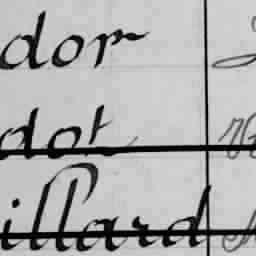 dor
dot
illard